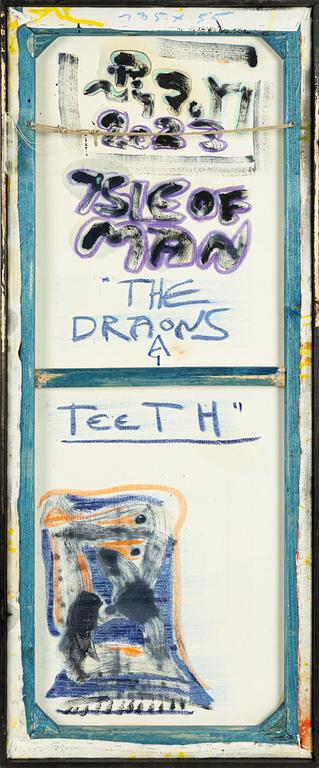 135 x 55
2023
ISLE OF
MAN
"THE
DRAONS
G
TEETH"